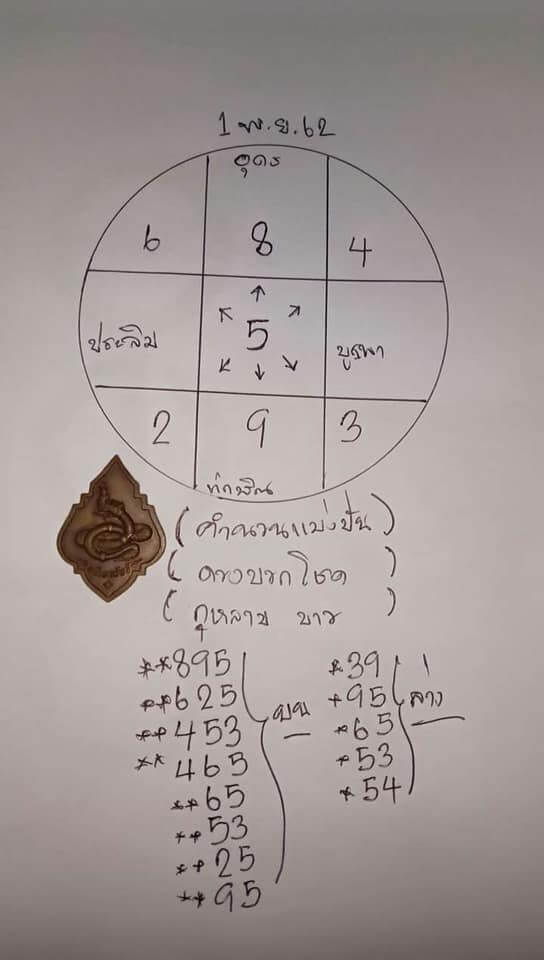 1 พ.ย.62
อุดร
6 8 4
ประจิม 5 บูรพา
2 9 3
ทักษิณ
(คำนวนแบ่งปัน)
(ดวงบวกโชค)
(กุหลาบ ขาว)
**895
**625
**453
**465
**65
**53
**25
**95
บน
*39
*95
*65
*53
*54
ล่าง